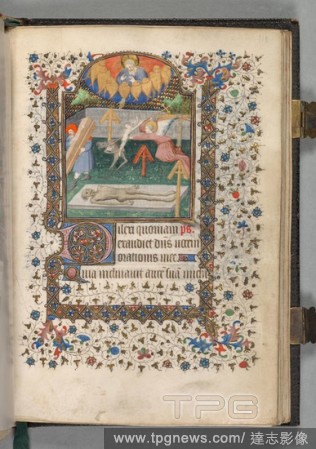 Dilexi quoniam
exaudiet dns vocem
orationis mee
Quia inclinavit aurē suā michi
TPG
www.tpgnews.com/ 達志影像